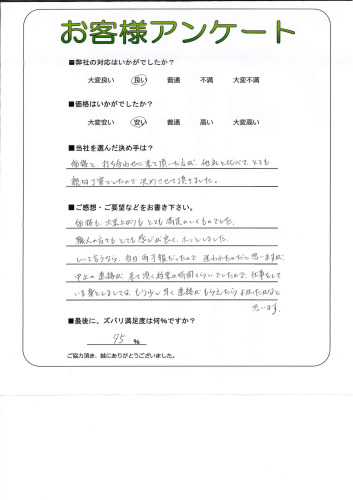 お客様アンケート
■弊社の対応はいかがでしたか？
大変良い 良い 普通 不満 大変不満
■価格はいかがでしたか？
大変安い 安い 普通 高い 大変高い
■当社を選んだ決め手は？
価格と、打ち合わせに来て頂いた方が、他社と比べて、とても
親切丁寧でしたので決めさせて頂きました。
■ご感想・ご要望などをお書き下さい。
価格も、仕上がりもとても満足のいくものでした。
職人の方もとても感じが良く、ホッとしました。
しいて言うなら、当日雨予報だったので迷われたのだと思いますが、
中止の連絡が来て頂く約束の時間くらいでしたので、仕事をして
いる身としましては、もう少し早く連絡がもらえたらよかったかなと
思います。
■最後に、ズバリ満足度は何％ですか？
95 ％
ご協力頂き、誠にありがとうございました。